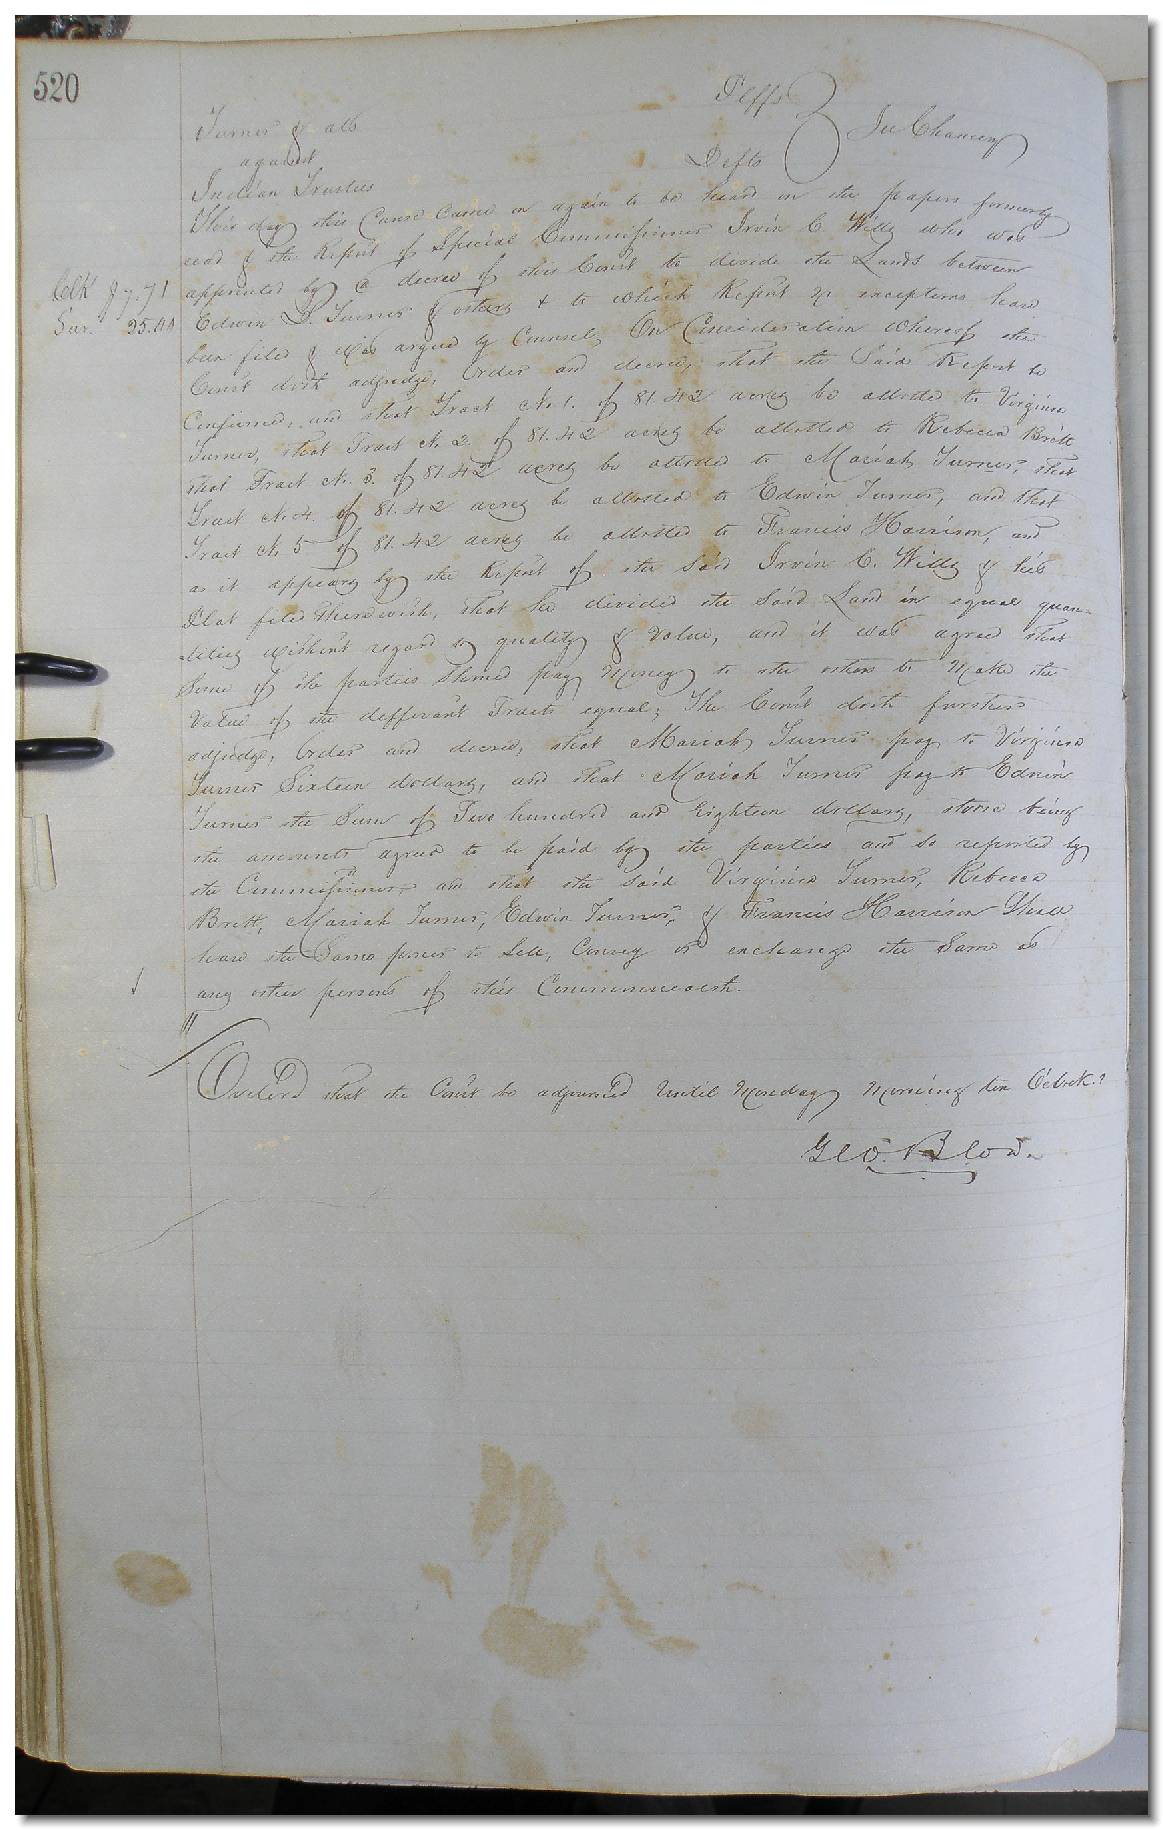 520
Turner & als Plffs
against In Chancery
Indian Trustees Defts
This day this Cause came on again to be heard on the papers formerly
read & the Report of Special Commissioner Irvin C. Wills who was
Clk $7.71 appointed by a decree of this Court to divide the Lands between
Sur. 25.40 Edwin D. Turner & others & to which Report no exceptions have
been filed & was argued by Counsel, On Consideration whereof the
Court doth adjudge, Order and decree, that the Said Report be
Confirmed, and that Tract No. 1. of 81.42 acres be allotted to Virginia
Turner, that Tract No. 2 of 81.42 acres be allotted to Rebecca Britt
that Tract No. 3. of 81.42 acres be allotted to Mariah Turner, that
Tract No. 4. of 81.42 acres be allotted to Edwin Turner, and that
Tract No 5 of 81.42 acres be allotted to Francis Harrison, and
as it appears by the Report of the Said Irvin C. Wills & his
Plat filed therewith, that he divided the Said Land in equal quan-
tities without regard to quality & Value, and it was agreed that
Some of the parties Should pay Money to the others to Make the
Value of the defferant Tracts equal; The Court doth further
adjudge, Order and decree, that Mariah Turner pay to Virginia
Turner Sixteen dollars, and that Mariah Turner pay to Edwin
Turner the Sum of Two hundred and Eighteen dollars, these being
the amounts agreed to be paid by the parties and so reported by
the Commissioner, and that the Said Virginia Turner, Rebecca
Britt, Mariah Turner, Edwin Turner, & Francis Harrison Shall
have the Same power to Sell, Convey or exchange the Same as
any other persons of this Commonwealth.
Orderd that the Court be adjourned Until Monday Morning ten O'clock.
Geo. Blow.